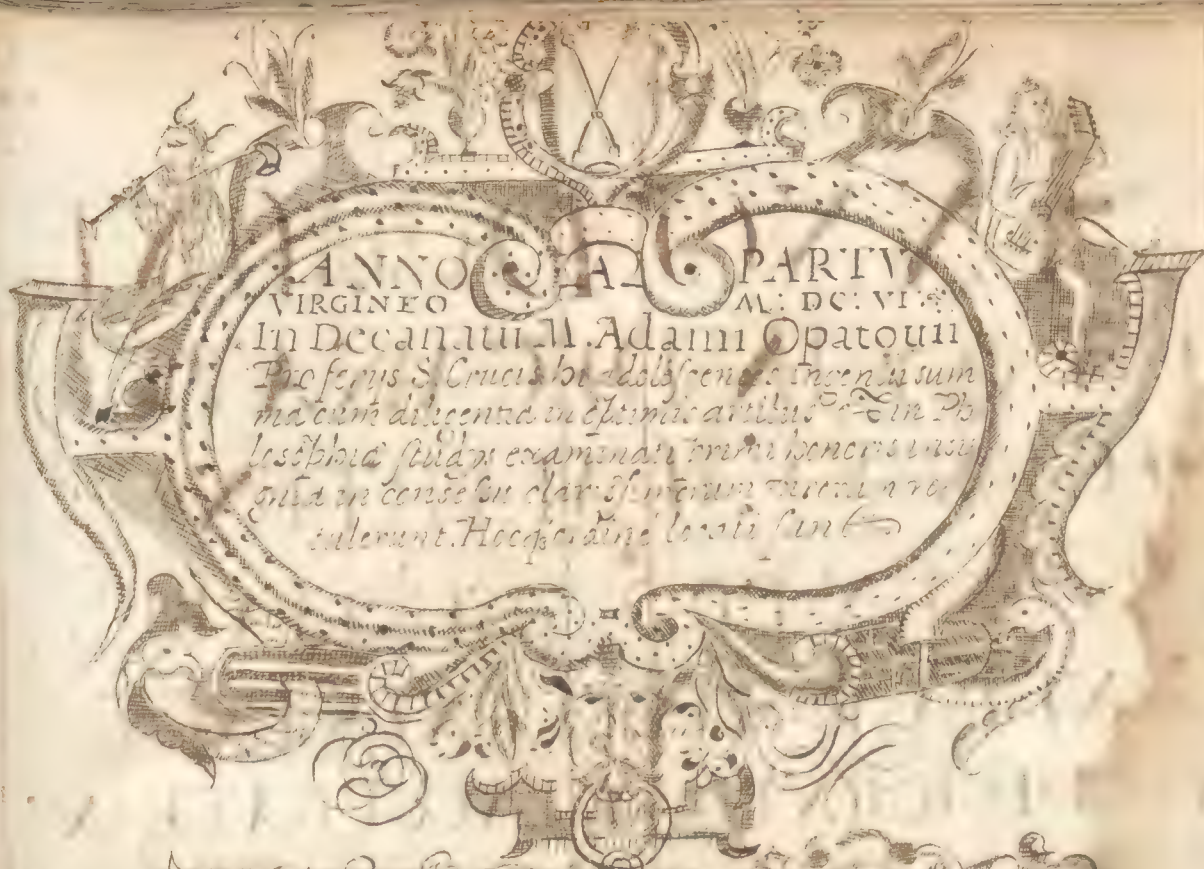 ANNO A PARTV
VIRGINEO M: DC: VI
In Decanatu M. Adami Opatouii
Pro ferijs S. Crucis hi adolescentes ingenui sum
ma cum diligentia in optimis artibus & in Phi
losophiae studijs examinati primi honoris insi
gnia in consessu clarissimorum virorum re
tulerunt. Hocq; ordine locati sunt